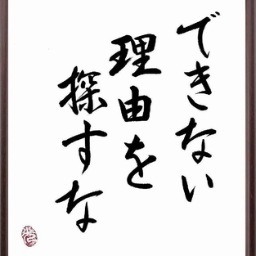 できない
理由を
探すな